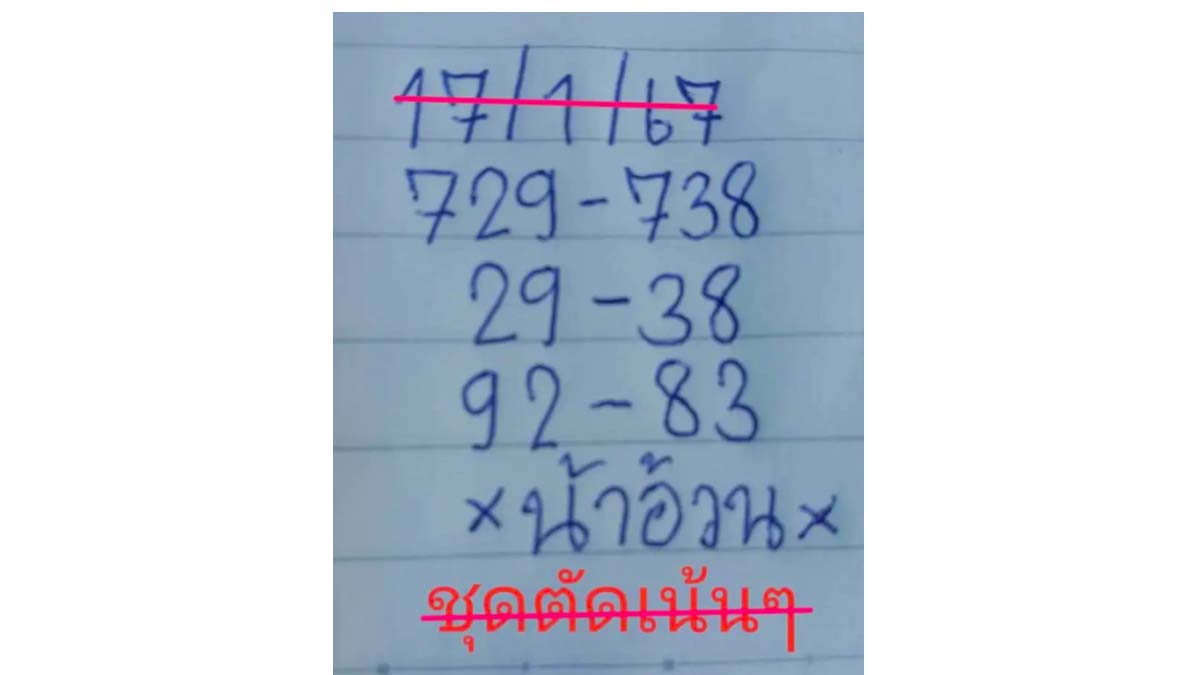 17/1/67
729-738
29-38
92-83
×น้าอ้วน×
ชุดตัดเน้นๆ